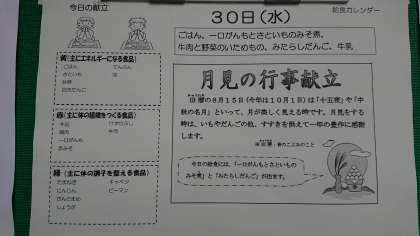 今日の献立
給食カレンダー
30日(水)
ごはん、一口がんもとさといものみそ煮、
牛肉と野菜のいためもの、みたらしだんご、牛乳
黄(主にエネルギーになる食品)
ごはん でんぷん
さといも
砂糖
赤(主に体の組織をつくる食品)
牛乳
鶏肉 牛肉
一口がんも
赤みそ
緑(主に体の調子を整える食品)
たまねぎ キャベツ
にんじん ピーマン
さんどまめ
しょうが
月見の行事献立
旧暦の8月15日(今年は10月1日)は「十五夜」や「中
秋の名月」といって、月が美しく見える時です。月見をする
時は、いもやだんごの他、すすきを供えて一年の豊作に感謝
します。
今日の給食には、「一口がんもとさといもの
みそ煮」と「みたらしだんご」が出ます。